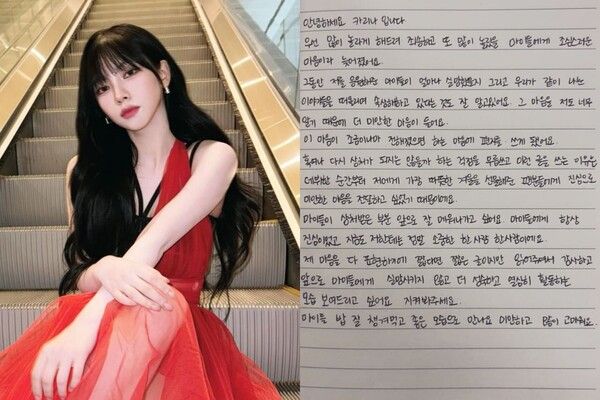 안녕하세요 카리나 입니다
우선 많이 놀라게 해드려 죄송하고 또 많이 놀랐을 마이들에게 조심스러운
마음이라 늦어졌어요.
그동안 저를 응원해준 마이들이 얼마나 실망했을지 그리고 우리가 같이 나눈
이야기들을 떠올리며 속상해하고 있다는 것도 잘 알고있어요. 그 마음을 저도 너무
알기 때문에 더 미안한 마음이 들어요.
이 마음이 조금이나마 전해졌으면 하는 마음에 편지를 쓰게 됐어요.
혹여나 다시 상처가 되지는 않을까 하는 걱정을 무릅쓰고 이런 글을 쓰는 이유는
데뷔한 순간부터 저에게 가장 따뜻한 겨울을 선물해준 팬분들에게 진심으로
미안한 마음을 전달하고 싶었기 때문이에요.
마이들이 상처받은 부분 앞으로 잘 메워나가고 싶어요. 마이들에게 항상
진심이었고 지금도 저한테는 정말 소중한 한사람 한사람이에요.
제 마음을 다 표현하기에 짧다면 짧은 글이지만 읽어주셔서 감사하고
앞으로 마이들에게 실망시키지 않고 더 성숙하고 열심히 활동하는
모습 보여드리고 싶어요. 지켜봐주세요.
마이들 밥 잘 챙겨먹고 좋은 모습으로 만나요 미안하고 많이 고마워요.